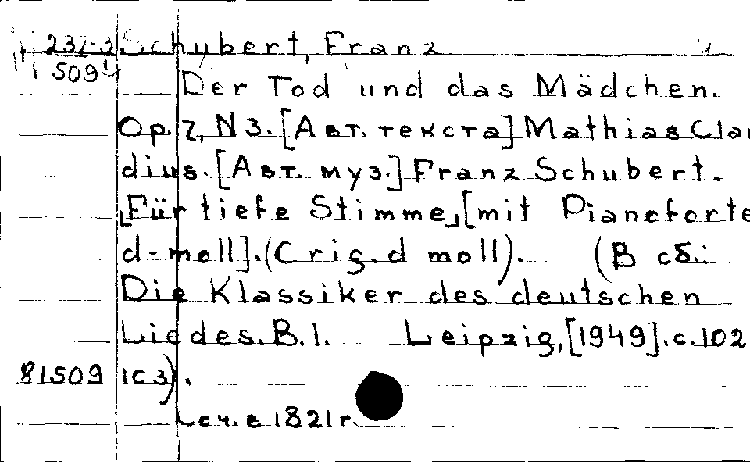 232-3 Schubert, Franz
509
Der Tod und das Mädchen.
Op. 7, N 3. [Авт. текста] Mathias Clau
dius. [Авт. муз.] Franz Schubert.
„Für tiefe Stimme„ [mit Pianoforte
d-moll]. (Orig. d moll). (В сб.:
Die Klassiker des deutschen
Liedes. B. 1. Leipzig, [1949]. с. 102
81509
Соч. в 1821 г.